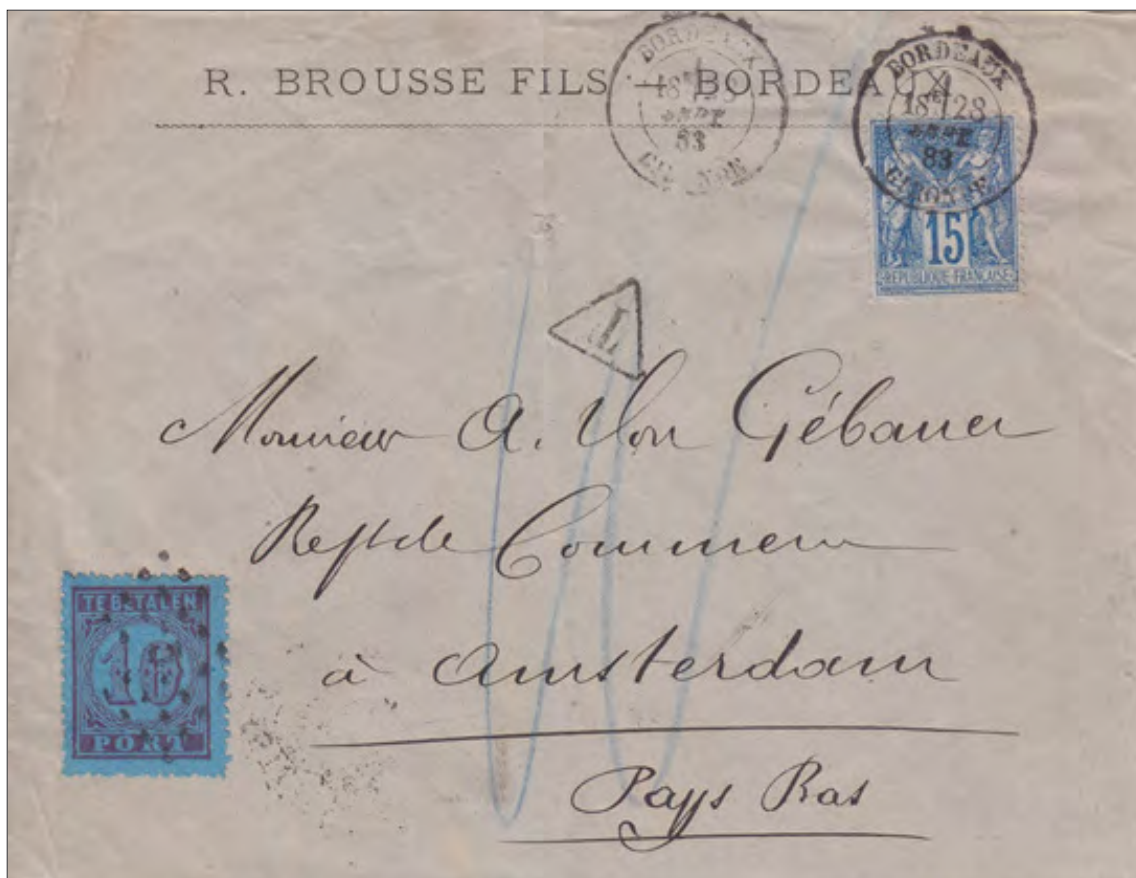 R. BROUSSE FILS — BORDEAUX
BORDEAUX
18E 28
SEPT
83
GIRONDE
BORDEAUX
18E 28
SEPT
83
GIRONDE
15
REPUBLIQUE FRANÇAISE
T
10
Monsieur A. Von Gébauer
Rept de Commerce
à Amsterdam
Pays Bas
TE BETALEN
10
PORT